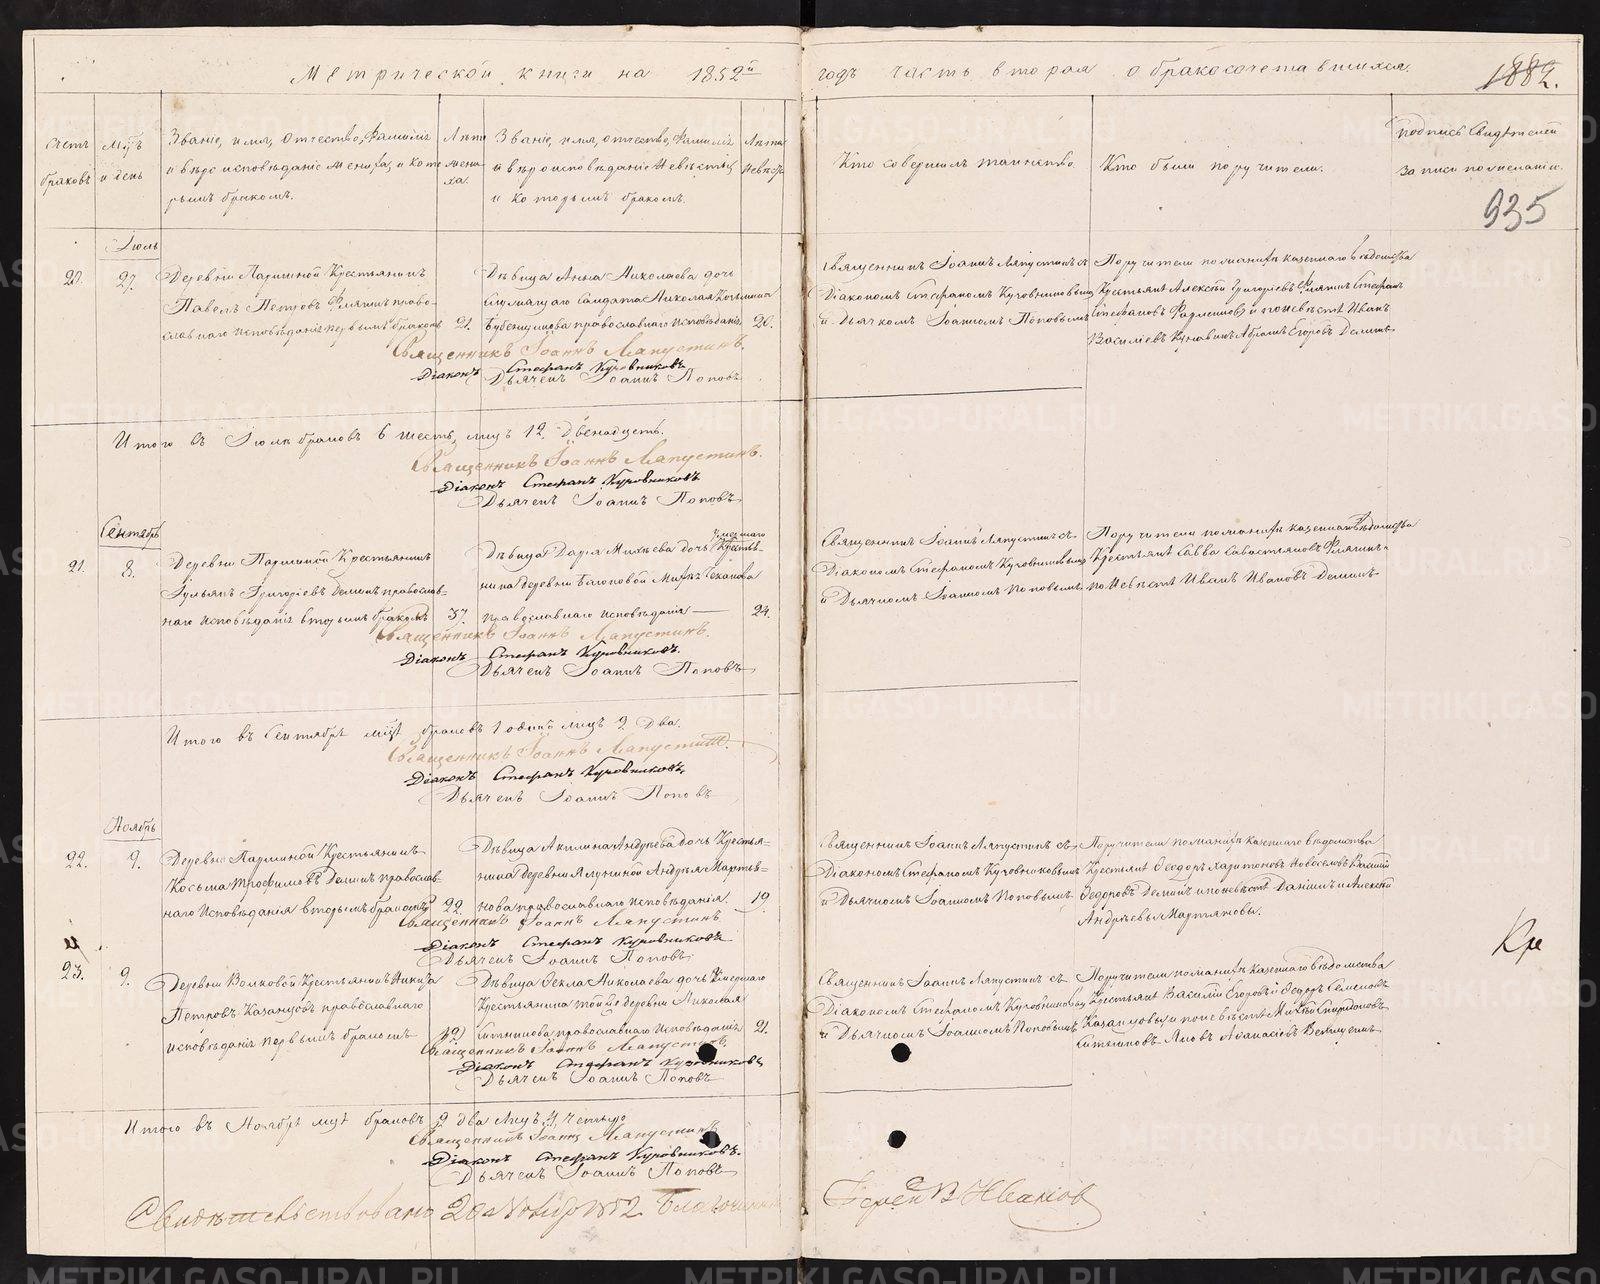 Метрической книги на 1852й годъ часть вторая о бракосочетавшихся.
1882.
Счетъ браковъ
Мцъ и день
Званіе, имя, отчество, фамилія
и вѣроисповѣданіе жениха, и кото
рымъ бракомъ.
Лѣта жениха.
Званіе, имя, отчество, фамилія
и вѣроисповѣданіе невѣсты,
и которымъ бракомъ.
Лѣта невѣсты
Кто совершилъ таинство.
Кто были поручители.
Подпись свидѣтелей
записи по желанію.
935
Іюль
20. 27.
Деревни Паршиной Крестьянинъ
Павелъ Петровъ право-
славнаго исповѣданія первымъ бракомъ 21.
Дѣвица Анна Николаева дочь
Солдата Николая
православнаго исповѣданія. 20.
Священникъ Іоаннъ Ляпустинъ съ
Діакономъ Стефаномъ Куровниковымъ
и Дьячкомъ Іоанномъ Поповымъ
Поручители по женихѣ казеннаго вѣдомства
Крестьяне Алексѣй Григорьевъ Стефанъ
Стефановъ и по невѣстѣ Иванъ
Василіевъ Егоровъ
Священникъ Іоаннъ Ляпустинъ.
Діаконъ Стефанъ Куровниковъ
Дьячекъ Іоаннъ Поповъ
Итого въ Іюлѣ браковъ 6 шесть, лицъ 12. двенадцеть.
Священникъ Іоаннъ Ляпустинъ.
Діаконъ Стефанъ Куровниковъ
Дьячекъ Іоаннъ Поповъ
Сентябрь
21. 8.
Деревни Паршиной Крестьянинъ
Григоріевъ Деминъ православ-
наго исповѣданія вторымъ бракомъ 37.
умершаго
Дѣвица Дарья Михѣева дочь Крестья-
нина деревни
православнаго исповѣданія 24.
Священникъ Іоаннъ Ляпустинъ съ
Діакономъ Стефаномъ Куровниковымъ
и Дьячкомъ Іоанномъ Поповымъ
Поручители по женихѣ казеннаго вѣдомства
Крестьяне Савва Савастьяновъ
по невѣстѣ Иванъ Ивановъ Деминъ
Священникъ Іоаннъ Ляпустинъ.
Діаконъ Стефанъ Куровниковъ.
Дьячекъ Іоаннъ Поповъ
Итого въ Сентябрѣ мцѣ браковъ 1 одинъ лицъ 2 два.
Священникъ Іоаннъ Ляпустинъ.
Діаконъ Стефанъ Куровниковъ
Дьячекъ Іоаннъ Поповъ
Ноябрь
22. 9.
Деревни Паршиной Крестьянинъ
Косьма Трофимовъ Деминъ православ-
наго исповѣданія вторымъ бракомъ 22.
Дѣвица Акилина Андреева дочь Крестья-
нина деревни Андрея Мартья-
нова православнаго исповѣданія. 19.
Священникъ Іоаннъ Ляпустинъ съ
Діакономъ Стефаномъ Куровниковымъ
и Дьячкомъ Іоанномъ Поповымъ
Поручители по женихѣ казеннаго вѣдомства
Крестьяне Ѳеодоръ Харитоновъ Новоселовъ Василій
Ѳедоровъ Деминъ и по невѣстѣ Даніилъ и Алексѣй
Андреевы Мартьяновы.
Священникъ Іоаннъ Ляпустинъ
Діаконъ Стефанъ Куровниковъ
Дьячекъ Іоаннъ Поповъ
23. 9.
Деревни Волковой Крестьянинъ Никита
Петровъ Казанцовъ православнаго
исповѣданія первымъ бракомъ
Дѣвица Ѳекла Николаева дочь умершаго
Крестьянина той же деревни Николая
Ситникова православнаго исповѣданія 21.
Священникъ Іоаннъ Ляпустинъ съ
Діакономъ Стефаномъ Куровниковымъ
и Дьячкомъ Іоанномъ Поповымъ
Поручители по женихѣ казеннаго вѣдомства
Крестьяне Василій Егоровъ и Ѳедоръ
Казанцовы и по невѣстѣ Спиридоновъ
Ситниковъ Яковъ Аѳанасіевъ
Священникъ Іоаннъ Ляпустинъ.
Діаконъ Стефанъ Куровниковъ
Дьячекъ Іоаннъ Поповъ
Итого въ Ноябрѣ мцѣ браковъ 2 два лицъ 4. четыре
Священникъ Іоаннъ Ляпустинъ
Діаконъ Стефанъ Куровниковъ.
Дьячекъ Іоаннъ Поповъ
Свидѣтельствовано
METRIKI.GASO-URAL.RU